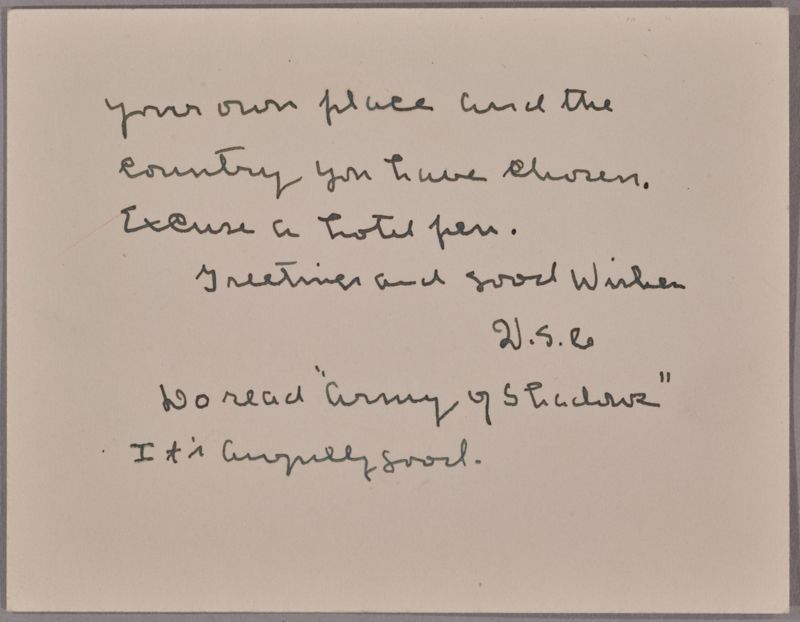 your own place and the
country you have chosen.
Excuse a hotel pen.
Greetings and good Wishes
W.S.C
Do read "Army of Shadows"
It's awfully good.